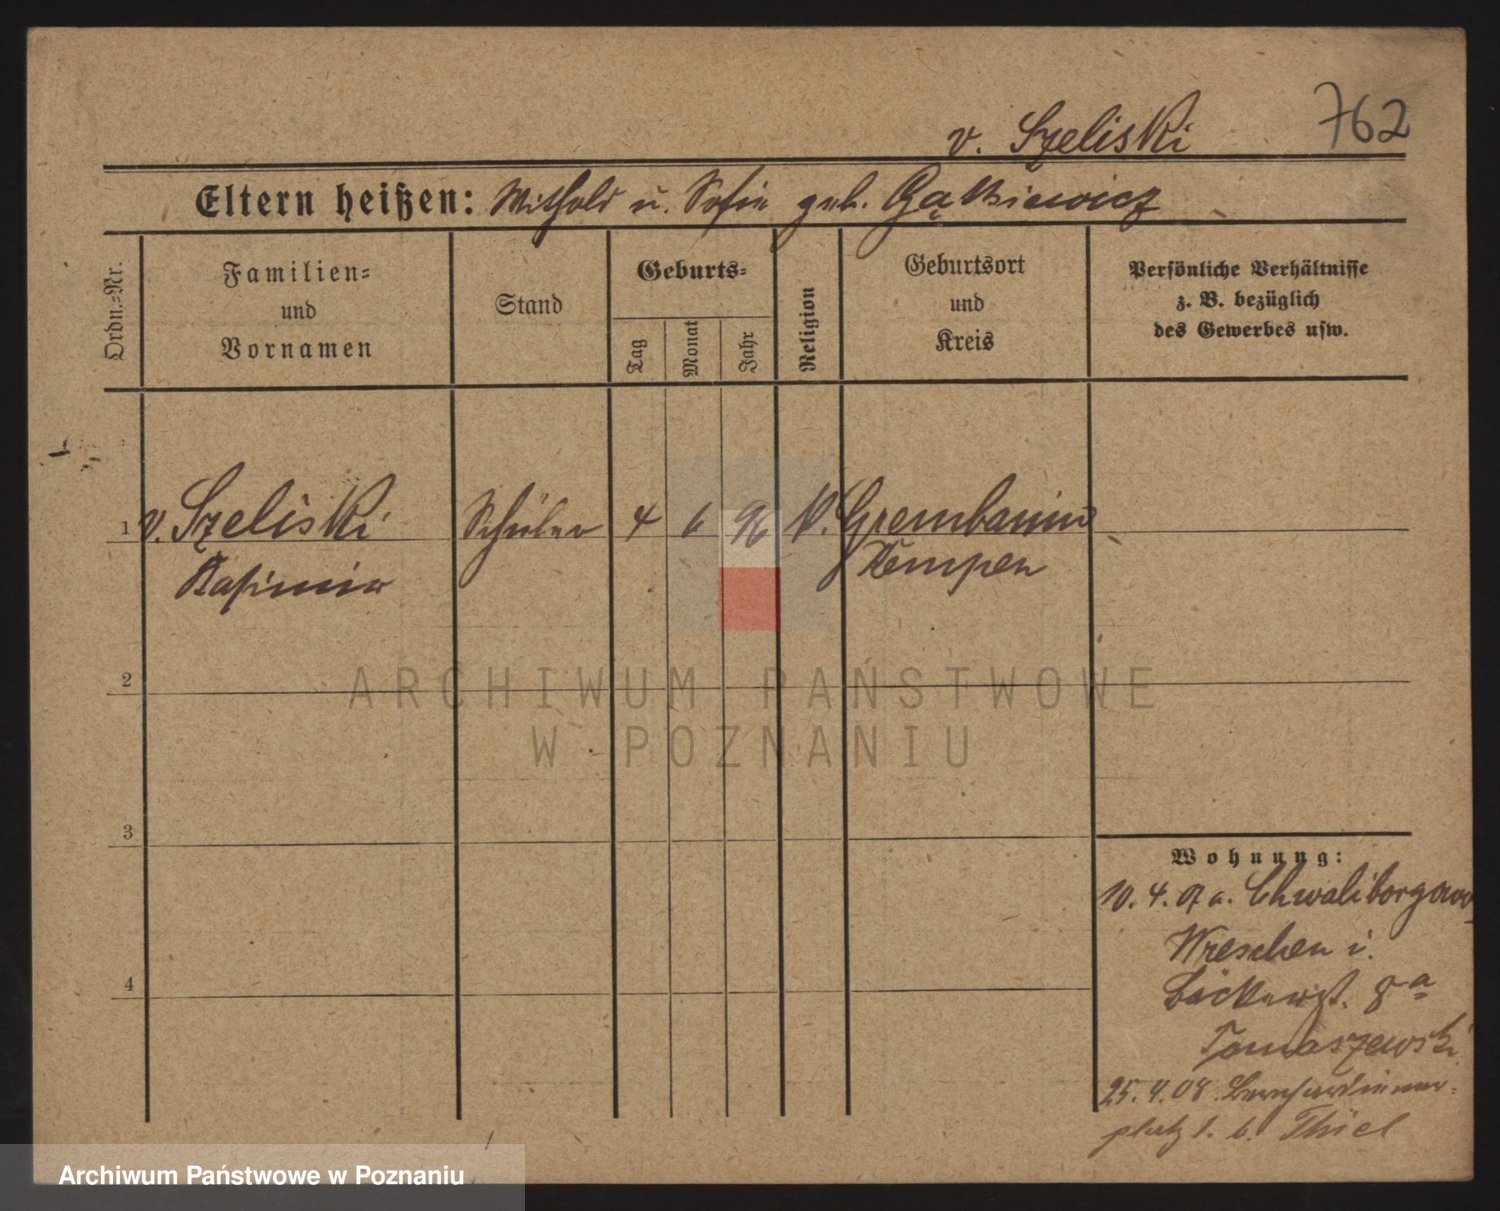 762
v. Szeliski
Eltern heißen: Withold u. Sofie geb. Gątkiewicz
Ordn.-Nr.
Familien-
und
Vornamen
Stand
Geburts-
Tag
Monat
Jahr
Religion
Geburtsort
und
Kreis
Persönliche Verhältnisse
z. B. bezüglich
des Gewerbes usw.
1 v. Szeliski Schüler 4 6 96 K. Grembanin
Kasimir Kempen
2
ARCHIWUM PAŃSTWOWE
W POZNANIU
3
4
Wohnung:
10.4.07 a. Chwaliborgowo
Wreschen i.
Bäckerst. 8a
Tomaszewski
25.4.08 Bernhardiner-
platz 1. b. Thiel
Archiwum Państwowe w Poznaniu